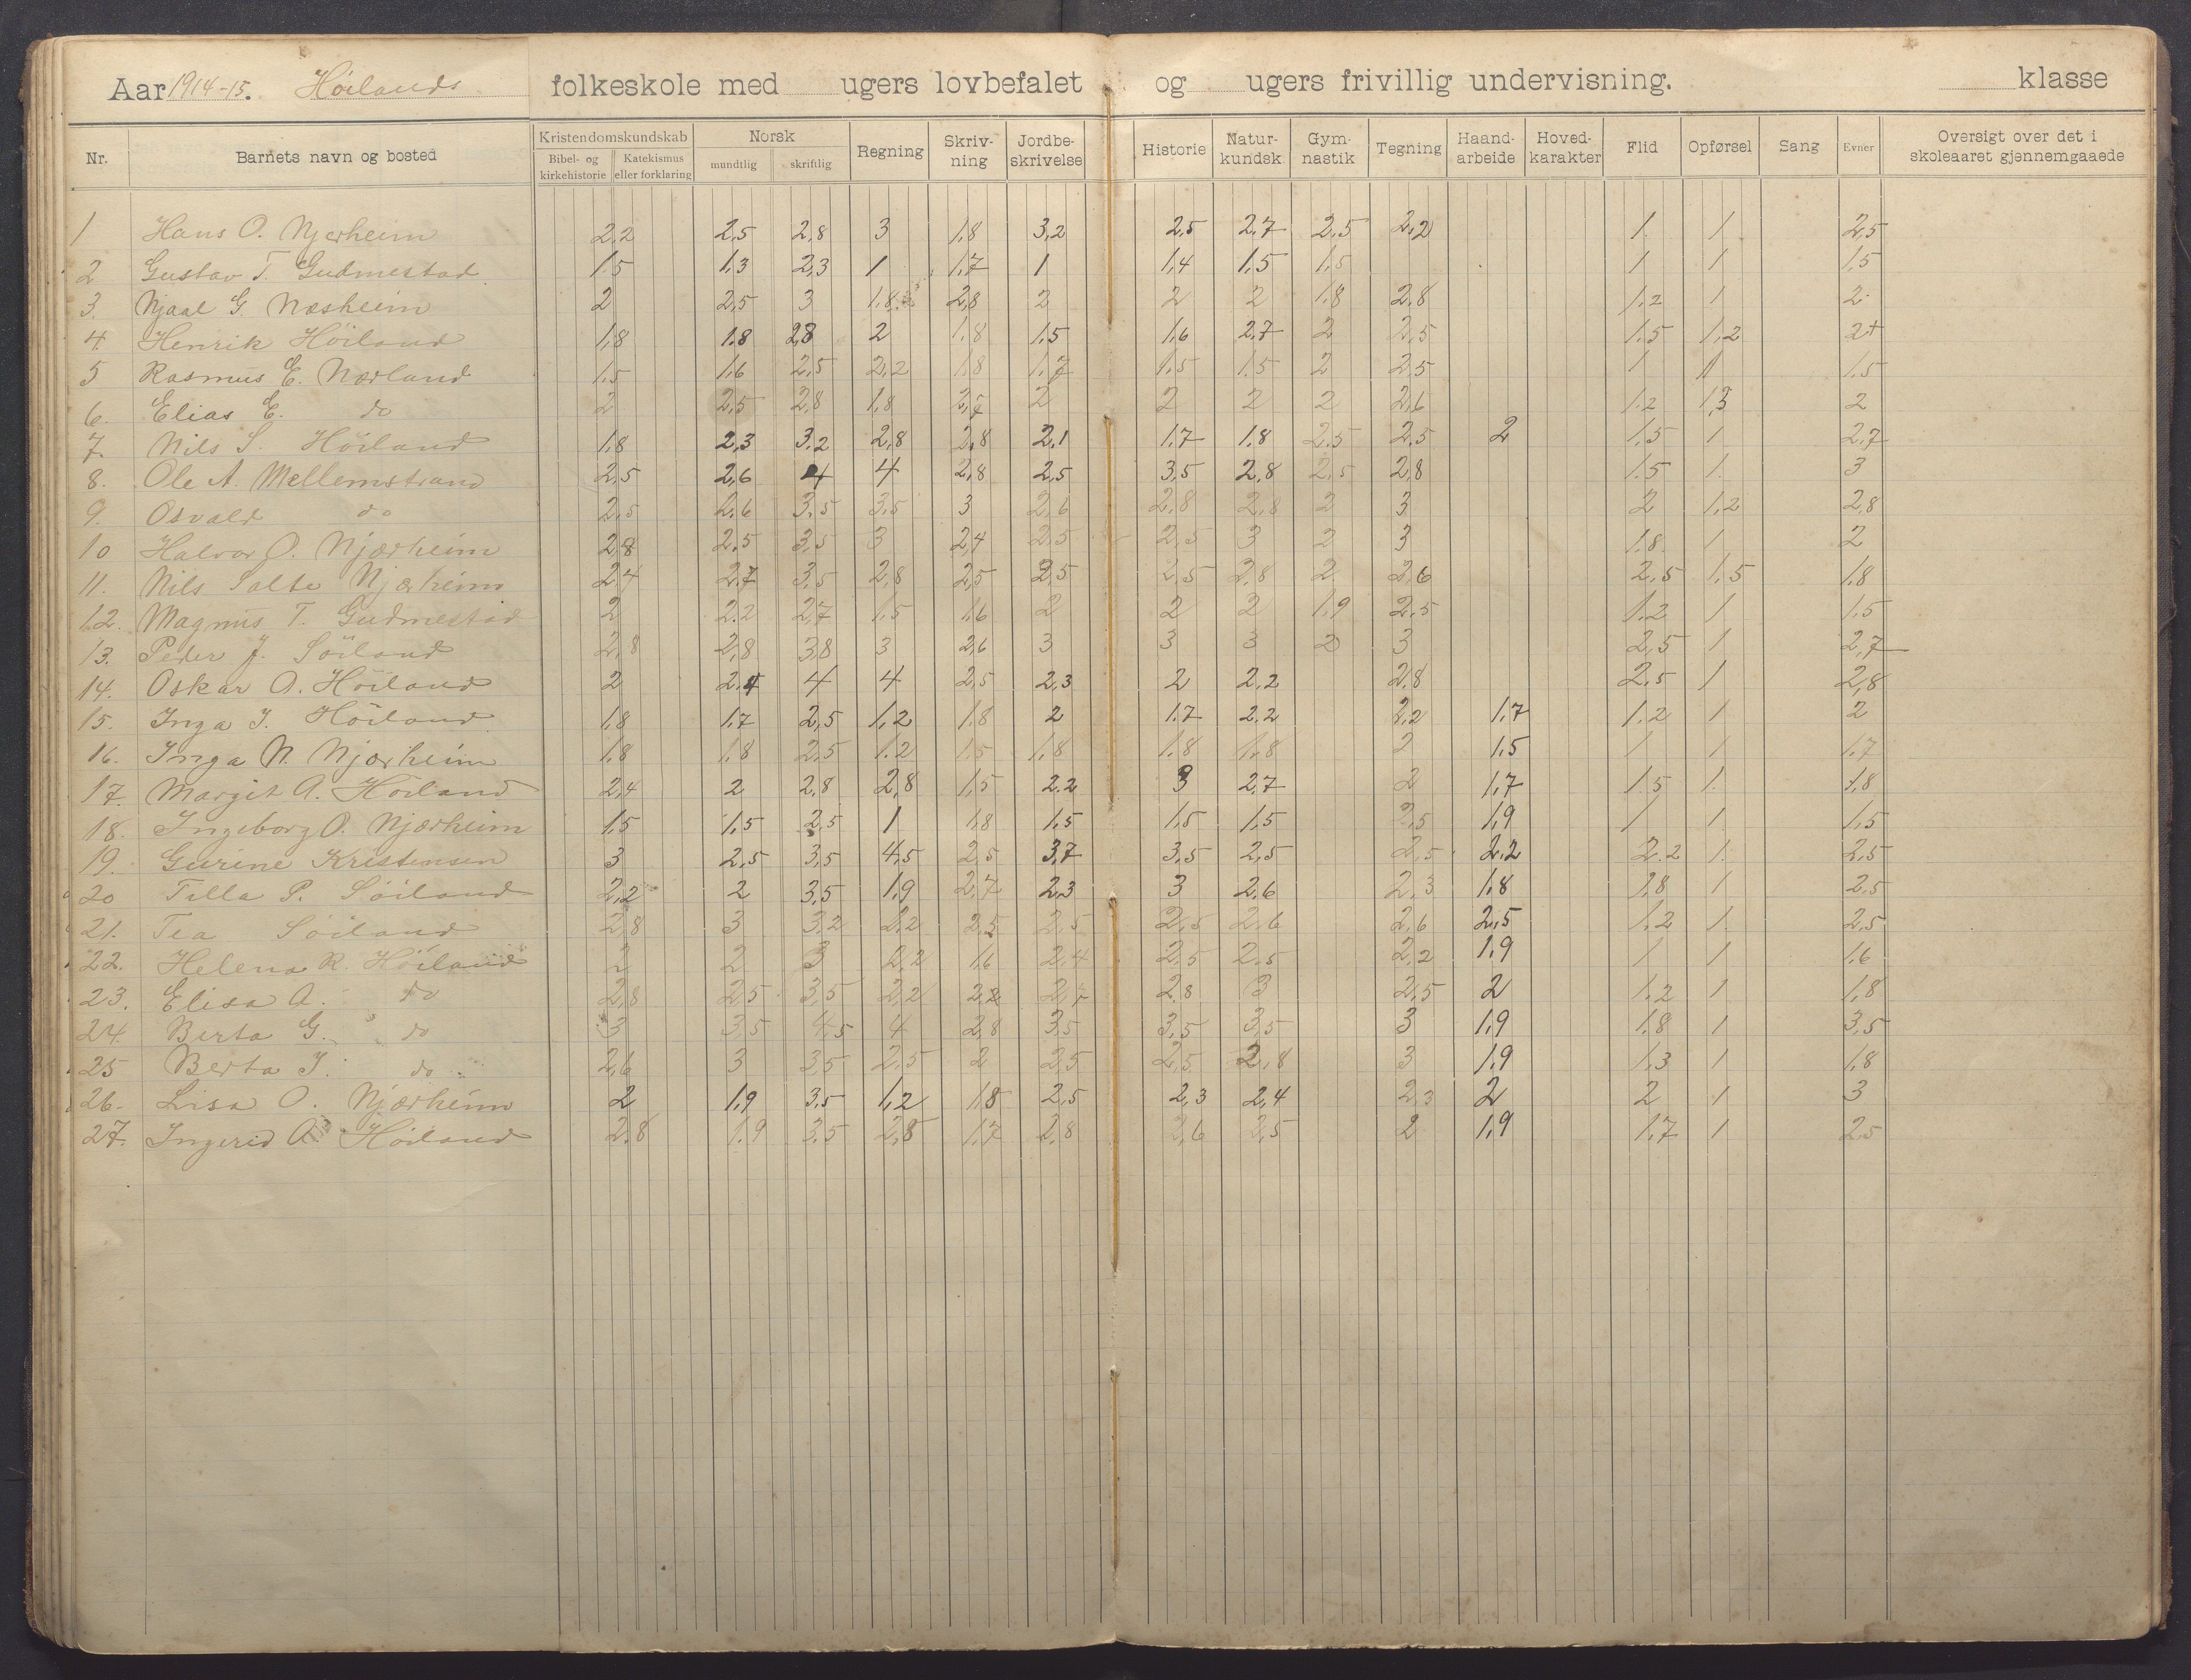 Aar 1914-15. Höilands folkeskole med ugers lovbefalet og ugers frivillig undervisning. klasse
Nr. Barnets navn og bosted Kristendomskundskab Bibel- og kirkehistorie Katekismus eller forklaring Norsk mundtlig skriftlig Regning Skriv-ning Jordbe-skrivelse Historie Natur-kundsk. Gym-nastik Tegning Haand-arbeide Hoved-karakter Flid Opførsel Sang Evner Oversigt over det i skoleaaret gjennemgaaede
1 Hans O. Njærheim 2,2 2,5 2,8 3 1,8 3,2 2,5 2,7 2,5 2,2 1 1 2,5
2 Gustav T. Gudmestad 1,5 1,3 2,3 1 1,7 1 1,4 1,5 1,5 1 1 1,5
3. Njaal G. Næsheim 2 2,5 3 1,8 2,8 2 2 2 1,8 2,8 1,2 1 2
4. Henrik Höiland 1,8 1,8 2,8 2 1,8 1,5 1,6 2,7 2 2,5 1,5 1,2 2+
5 Rasmus E. Nærland 1,5 1,6 2,5 2,2 1,8 1,7 1,5 1,5 2 2,5 1 1 1,5
6. Elias E. do 2 2,5 2,8 1,8 2,7 2 2 2 2 2,6 1,2 1,3 2
7. Nils S. Höiland 1,8 2,3 3,2 2,8 2,8 2,1 1,7 1,8 2,5 2,5 2 1,5 1 2,7
8. Ole A. Mellemstrand 2,5 2,6 4 4 2,8 2,5 3,5 2,8 2,5 2,8 1,5 1 3
9. Osvald do 2,5 2,6 3,5 3,5 3 2,6 2,8 2,8 2 3 2 1,2 2,8
10 Halvor O. Njærheim 2,8 2,5 3,5 3 2,4 2,5 2,5 3 2 3 1,8 1 2
11. Nils Salte Njærheim 2,4 2,7 3,5 2,8 2,5 2,5 2,5 2,8 2 2,6 2,5 1,5 1,8
12. Magnus T. Gudmestad 2 2,2 2,7 1,5 1,6 2 2 2 1,9 2,5 1,2 1 1,5
13. Peder J. Söiland 2,8 2,8 3,8 3 2,6 3 3 3 2 3 2,5 1 2,7
14. Oskar O. Höiland 2 2,4 4 4 2,5 2,3 2 2,2 2,8 2,5 1 2,8
15. Inga J. Höiland 1,8 1,7 2,5 1,2 1,8 2 1,7 2,2 2,2 1,7 1,2 1 2
16. Inga N. Njærheim 1,8 1,8 2,5 1,2 1,5 1,8 1,8 1,8 2 1,5 1 1 1,7
17. Margit A. Höiland 2,4 2 2,8 2,8 1,5 2,2 3 2,7 2 1,7 1,5 1 1,8
18. Ingeborg O. Njærheim 1,5 1,5 2,5 1 1,8 1,5 1,5 1,5 2,5 1,9 1 1 1,5
19. Gurine Kristensen 3 2,5 3,5 4,5 2,5 3,7 3,5 2,5 2,5 2,2 2,2 1 2,5
20 Tilla P. Söiland 2,2 2 3,5 1,9 2,7 2,3 3 2,6 2,3 1,8 1,8 1 2,5
21. Tea Söiland 2,8 3 3,2 2,2 2,5 2,5 2,5 2,6 2,6 2,5 1,2 1 2,5
22. Helena R. Höiland 2 2 3 2,2 1,6 2,4 2,5 2,5 2,2 1,9 1 1 1,6
23. Elisa A. do 2,8 2,5 3,5 2,2 2,2 2,7 2,8 3 2,5 2 1,2 1 1,8
24. Berta G. do 3 3,5 4,5 4 2,8 3,5 3,5 3,5 3 1,9 1,8 1 3,5
25 Berta J. do 2,6 3 3,5 2,5 2 2,5 2,5 2,8 3 1,9 1,3 1 1,8
26. Lisa O. Njærheim 2 1,9 3,5 1,2 1,8 2,5 2,3 2,4 2,3 2 2 1 3
27. Ingerid A. Höiland 2,8 1,9 3,5 2,8 1,7 2,8 2,6 3,5 2 1,9 1,7 1 2,5